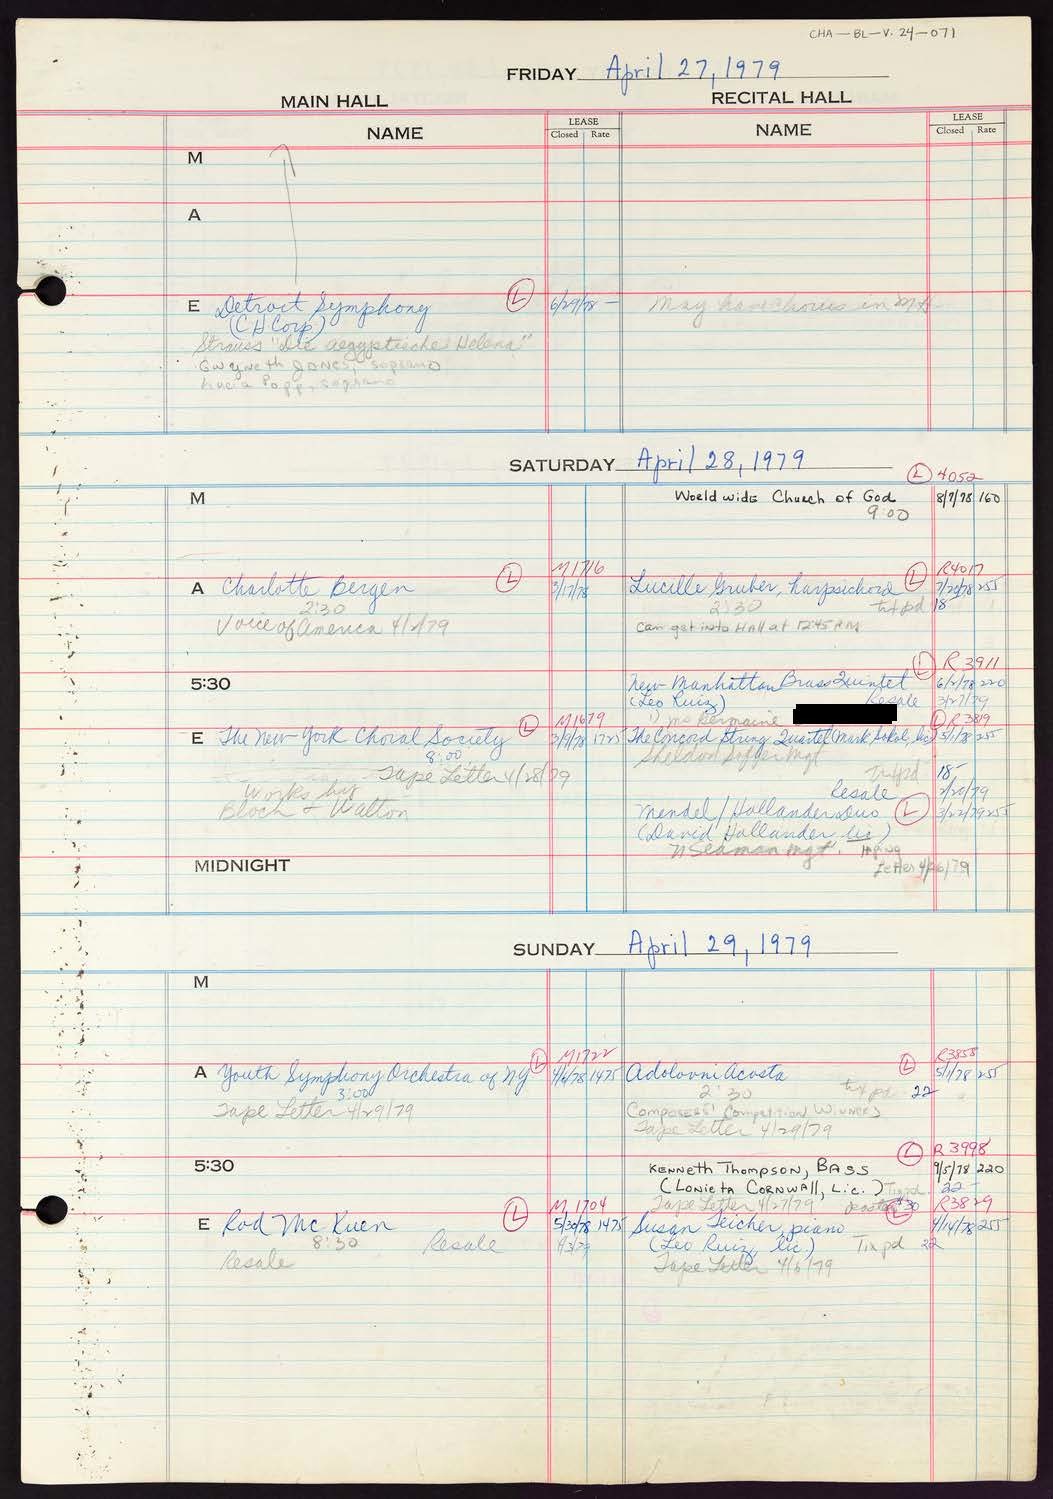 CHA—BL—V. 24—071
FRIDAY April 27, 1979
MAIN HALL RECITAL HALL
NAME LEASE Closed Rate NAME LEASE Closed Rate
M
A
E Detroit Symphony L 6/29/78 — May have chorus in MH
(CH Corp)
Strauss "Die aegyptische Helena"
Gwyneth JONES, soprano
Lucia Popp, soprano
SATURDAY April 28, 1979
L 4052
M World wide Church of God 8/7/78 160
9:00
M1716 R4017
A Charlotte Bergen L 3/17/78 Lucille Gruber, harpsichord L 7/20/78 255
2:30 2:30 txt pd 18
Voice of America 4/2/79 Can get into Hall at 12:45 PM
L R 3911
5:30 New Manhattan Brass Quintet 6/2/78 220
(Leo Ruiz) Resale 3/27/79
M1679 L R3819
E The New York Choral Society L 3/9/78 1725 The Concord String Quartet Mark Sokol, lic 5/1/78 255
8:00 Sheldon Soffer Mgt
Tape Letter 4/28/79 Txt pd 18—
Works by Resale 2/20/79
Bloch & Walton Mendel/Hollander Duo L 3/22/79 255
(David Hollander lic)
N Seaman Mgt.
MIDNIGHT Letter 4/26/79
SUNDAY April 29, 1979
M
M1722 R3858
A Youth Symphony Orchestra of NY L 4/6/78 1475 Adolovni Acosta L 5/1/78 255
3:00 2:30 txt pd 22
Tape Letter 4/29/79 Composers' Competition Winners
Tape Letter 4/29/79
L R 3998
5:30 KENNETH THOMPSON, BASS 9/5/78 220
(LONIETA CORNWALL, Lic.) Tix pd. 22—
M 1704 Tape Letter 4/27/79 R3829
E Rod McKuen L 5/30/78 1475 Susan Teicher, piano L 4/14/78 255
8:30 Resale (Leo Ruiz, lic.) Tix pd 22
Resale Tape Letter 4/6/79